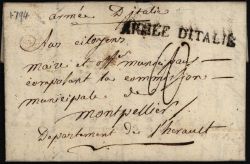 1794
armée D'italie
ARMÉE D'ITALIE
Aux citoyens
maire et offrs municipaux
composant la commission
municipale de
montpellier
Departement de l'herault